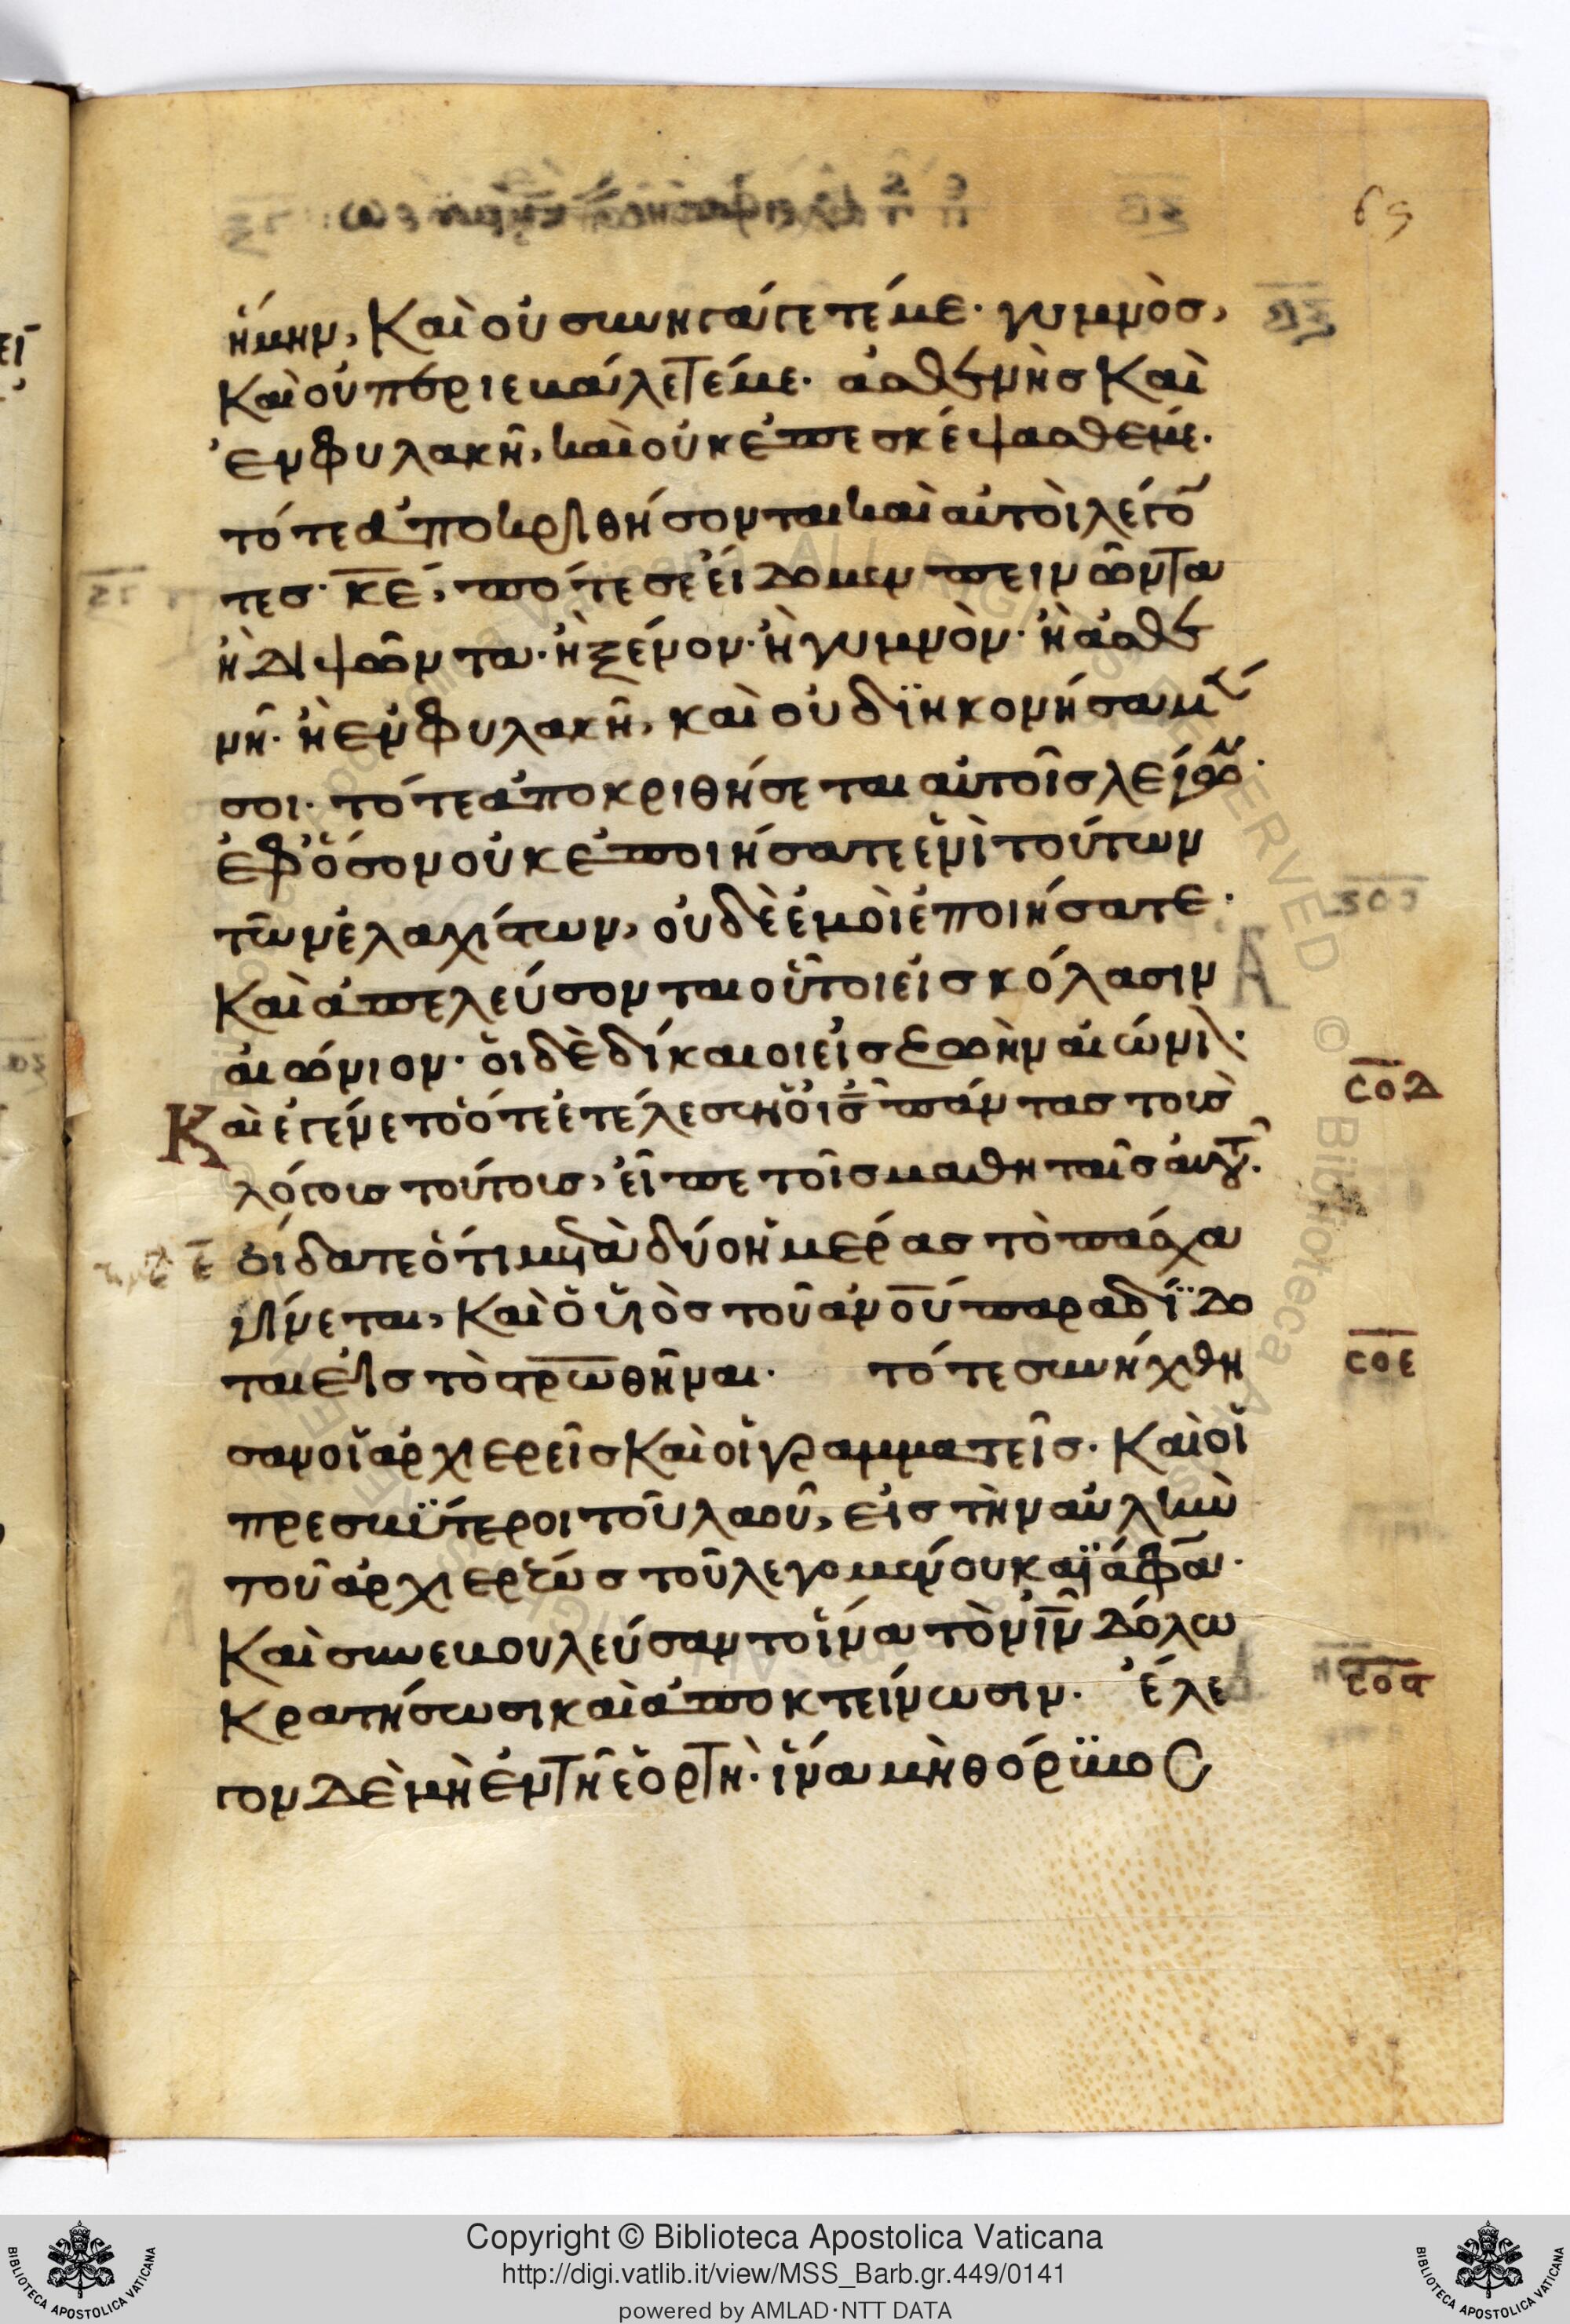 69
ἤμην, Καὶ οὐ συνηγάγετέ με· γυμνὸσ,
Καὶ οὐ περιεβάλετέ με· ἀσθενὴσ Καὶ
ἐν φυλακῆ, καὶ οὐκ ἐπεσκέψασθέ με.
τότε ἀποκριθήσονται καὶ αὐτοὶ λέγο
τεσ· κ̅ε̅, πότε σε εἴδομεν πεινῶντα
ἢ διψῶντα· ἢ ξένον· ἢ γυμνὸν· ἢ ἀσθε
νῆ· ἢ ἐν φυλακῆ, καὶ οὐ διηκονήσαμέ
σοι· τότε ἀποκριθήσεται αὐτοῖσ λέγων·
ἐφ ὅσον οὐκ ἐποιήσατε ἑνὶ τούτων
τῶν ἐλαχίστων, οὐδὲ ἐμοὶ ἐποιήσατε·
Καὶ ἀπελεύσονται οὗτοι εἰσ κόλασιν
αἰώνιον· οἱ δὲ δίκαιοι εἰσ ζωὴν αἰώνι·
Καὶ ἐγένετο ὅτε ἐτέλεσεν ὁ ι̅σ̅ πάντασ τουσ
σ̅ο̅δ̅
λόγουσ τούτουσ, εἶπε τοῖσ μαθηταῖσ αὐτοῦ.
οἴδατε ὅτι μετὰ δύο ἡμέρασ τὸ πάσχα
γίνεται, Καὶ ὁ υἱὸσ τοῦ α̅ν̅ο̅υ̅ παραδίδο
ται εἰσ τὸ σ̅ρ̅ω̅θῆναι· τότε συνήχθη
σ̅ο̅ε̅
σαν οἱ ἀρχιερεῖσ Καὶ οἱ γραμματεῖσ· Καὶ οἱ
πρεσβύτεροι τοῦ λαοῦ, εἰσ τὴν αὐλὴν
τοῦ ἀρχιερέωσ τοῦ λεγομένου καϊάφα·
Καὶ συνεβουλεύσαντο ἵνα τὸν ι̅ν̅ δόλω
Κρατήσωσι καὶ ἀποκτείνωσιν· ἔλε
σ̅ο̅ϛ̅
γον δὲ μὴ ἐν τῆ ἑορτῆ· ἵνα μὴ θόρυβοσ
Copyright © Biblioteca Apostolica Vaticana
http://digi.vatlib.it/view/MSS_Barb.gr.449/0141
powered by AMLAD·NTT DATA
BIBLIOTECA APOSTOLICA VATICANA
BIBLIOTECA APOSTOLICA VATICANA